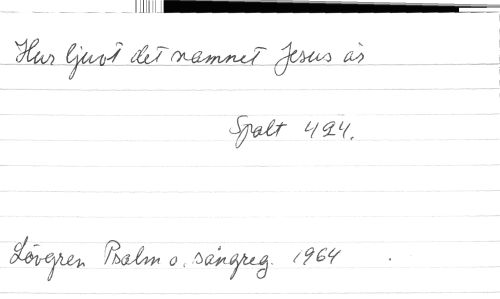 Hur ljuvt det namnet Jesus är
Spalt 424.
Lövgren Psalm o. sångreg. 1964